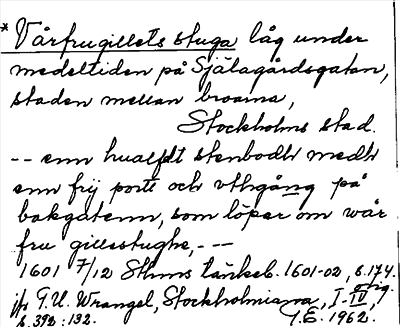 * Vårfrugillets stuga låg under
medeltiden på Själagårdsgatan,
staden mellan broarna,
Stockholms stad.
-- enn hualfdt stenbodh medh
enn frij portt och vthgång på
bakgatenn, som löper om wår
fru gillestughe, ---
1601 7/12 Sthms tänkeb. 1601-02, s. 174.
jfr F.U. Wrangel, Stockholmiana, I-IV, orig.
s. 392: 132. I.E. 1962.